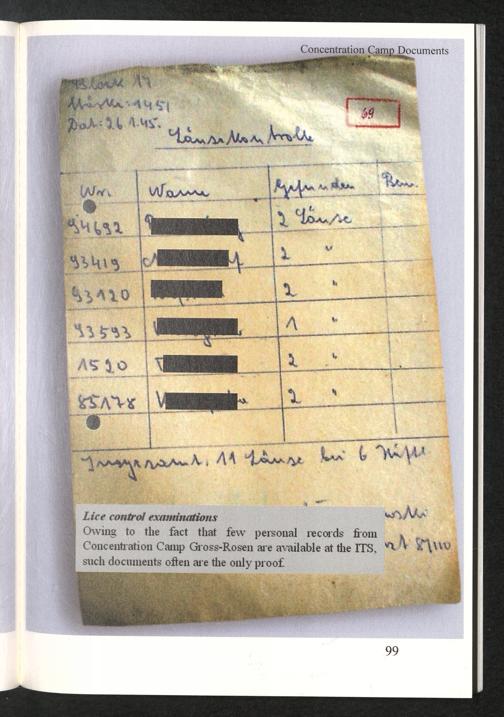 Concentration Camp Documents
Block 17
Stärke: 1451
Dat: 26.1.45.
69
Läusekontrolle
Nr. Name Gefunden Bem.
94692 2 Läuse
93419 2 "
93120 2 "
93593 1 "
1520 2 "
85178 2 "
Insgesamt. 11 Läuse bei 6 Häftl.
Lice control examinations
Owing to the fact that few personal records from
Concentration Camp Gross-Rosen are available at the ITS,
such documents often are the only proof.
99